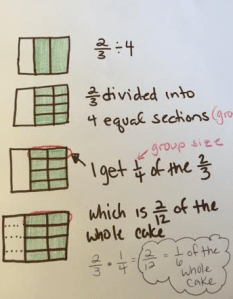 2/3 ÷ 4
2/3 divided into
4 equal sections
group size
I get 1/4 of the 2/3
which is 2/12 of the
whole cake
2/3 • 1/4 = 2/12 = 1/6 of the
whole
cake